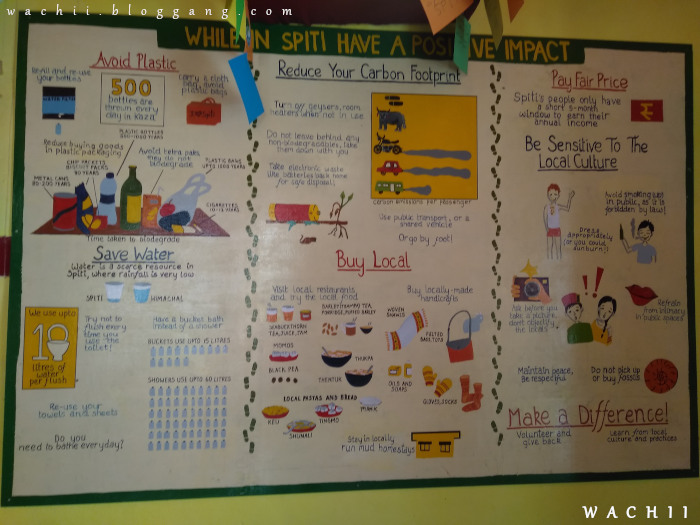 wachii.bloggang.com
WHILE IN SPITI HAVE A POSITIVE IMPACT
Avoid Plastic
Refill and re-use
your bottles
500
bottles are
thrown every
day in Kaza
Carry a cloth
bag, avoid
plastic bags
Reduce buying goods
in plastic packaging
PLASTIC BOTTLES
Avoid tetra paks
they do not
biodegrade
PLASTIC BAGS
UPTO 1000 YEARS
CHIP PACKETS
BISCUIT PACKS
80 YEARS
METAL CANS
80-200 YEARS
CIGARETTES
10-12 YEARS
Time taken to biodegrade
Save Water
Water is a scarce resource in
Spiti, where rainfall is very low
SPITI
HIMACHAL
We use upto
10
litres of
water
per flush
Try not to
flush every
time you
use the
toilet!
Have a bucket bath
instead of a shower
BUCKETS USE UPTO 15 LITRES
SHOWERS USE UPTO 60 LITRES
Re-use your
towels and sheets
Do you
need to bathe everyday?
Reduce Your Carbon Footprint
Turn off geysers, room
heaters when not in use
Do not leave behind any
non-biodegradables, take
them down with you
Take electronic waste
like batteries back home
for safe disposal
Carbon emissions per passenger
Use public transport, or a
shared vehicle
Or go by foot!
Buy Local
Visit local restaurants,
and try the local food
Buy locally-made
handicrafts
SEABUCKTHORN
TEA, JUICE, JAM
WOVEN
FELTED
MOMOS
THUKPA
BLACK PEA
THENTUK
OILS AND
SOAPS
GLOVES, SOCKS
LOCAL PASTAS AND BREAD
KEU
SHUNALI
TINGMO
Stay in locally
run mud homestays
Pay Fair Price
Spiti's people only have
a short 5-month
window to earn their
annual income
Be Sensitive To The
Local Culture
Avoid smoking
in public, as it is
forbidden by law!
Dress
appropriately
(or you could
sunburn!)
Ask before you
take a picture,
dont objectify
the locals
Refrain
from intimacy
in public spaces
Maintain peace,
Be respectful
Do not pick up
or buy fossils
Make a Difference!
Volunteer and
give back
Learn from local
culture and practices
WACHII